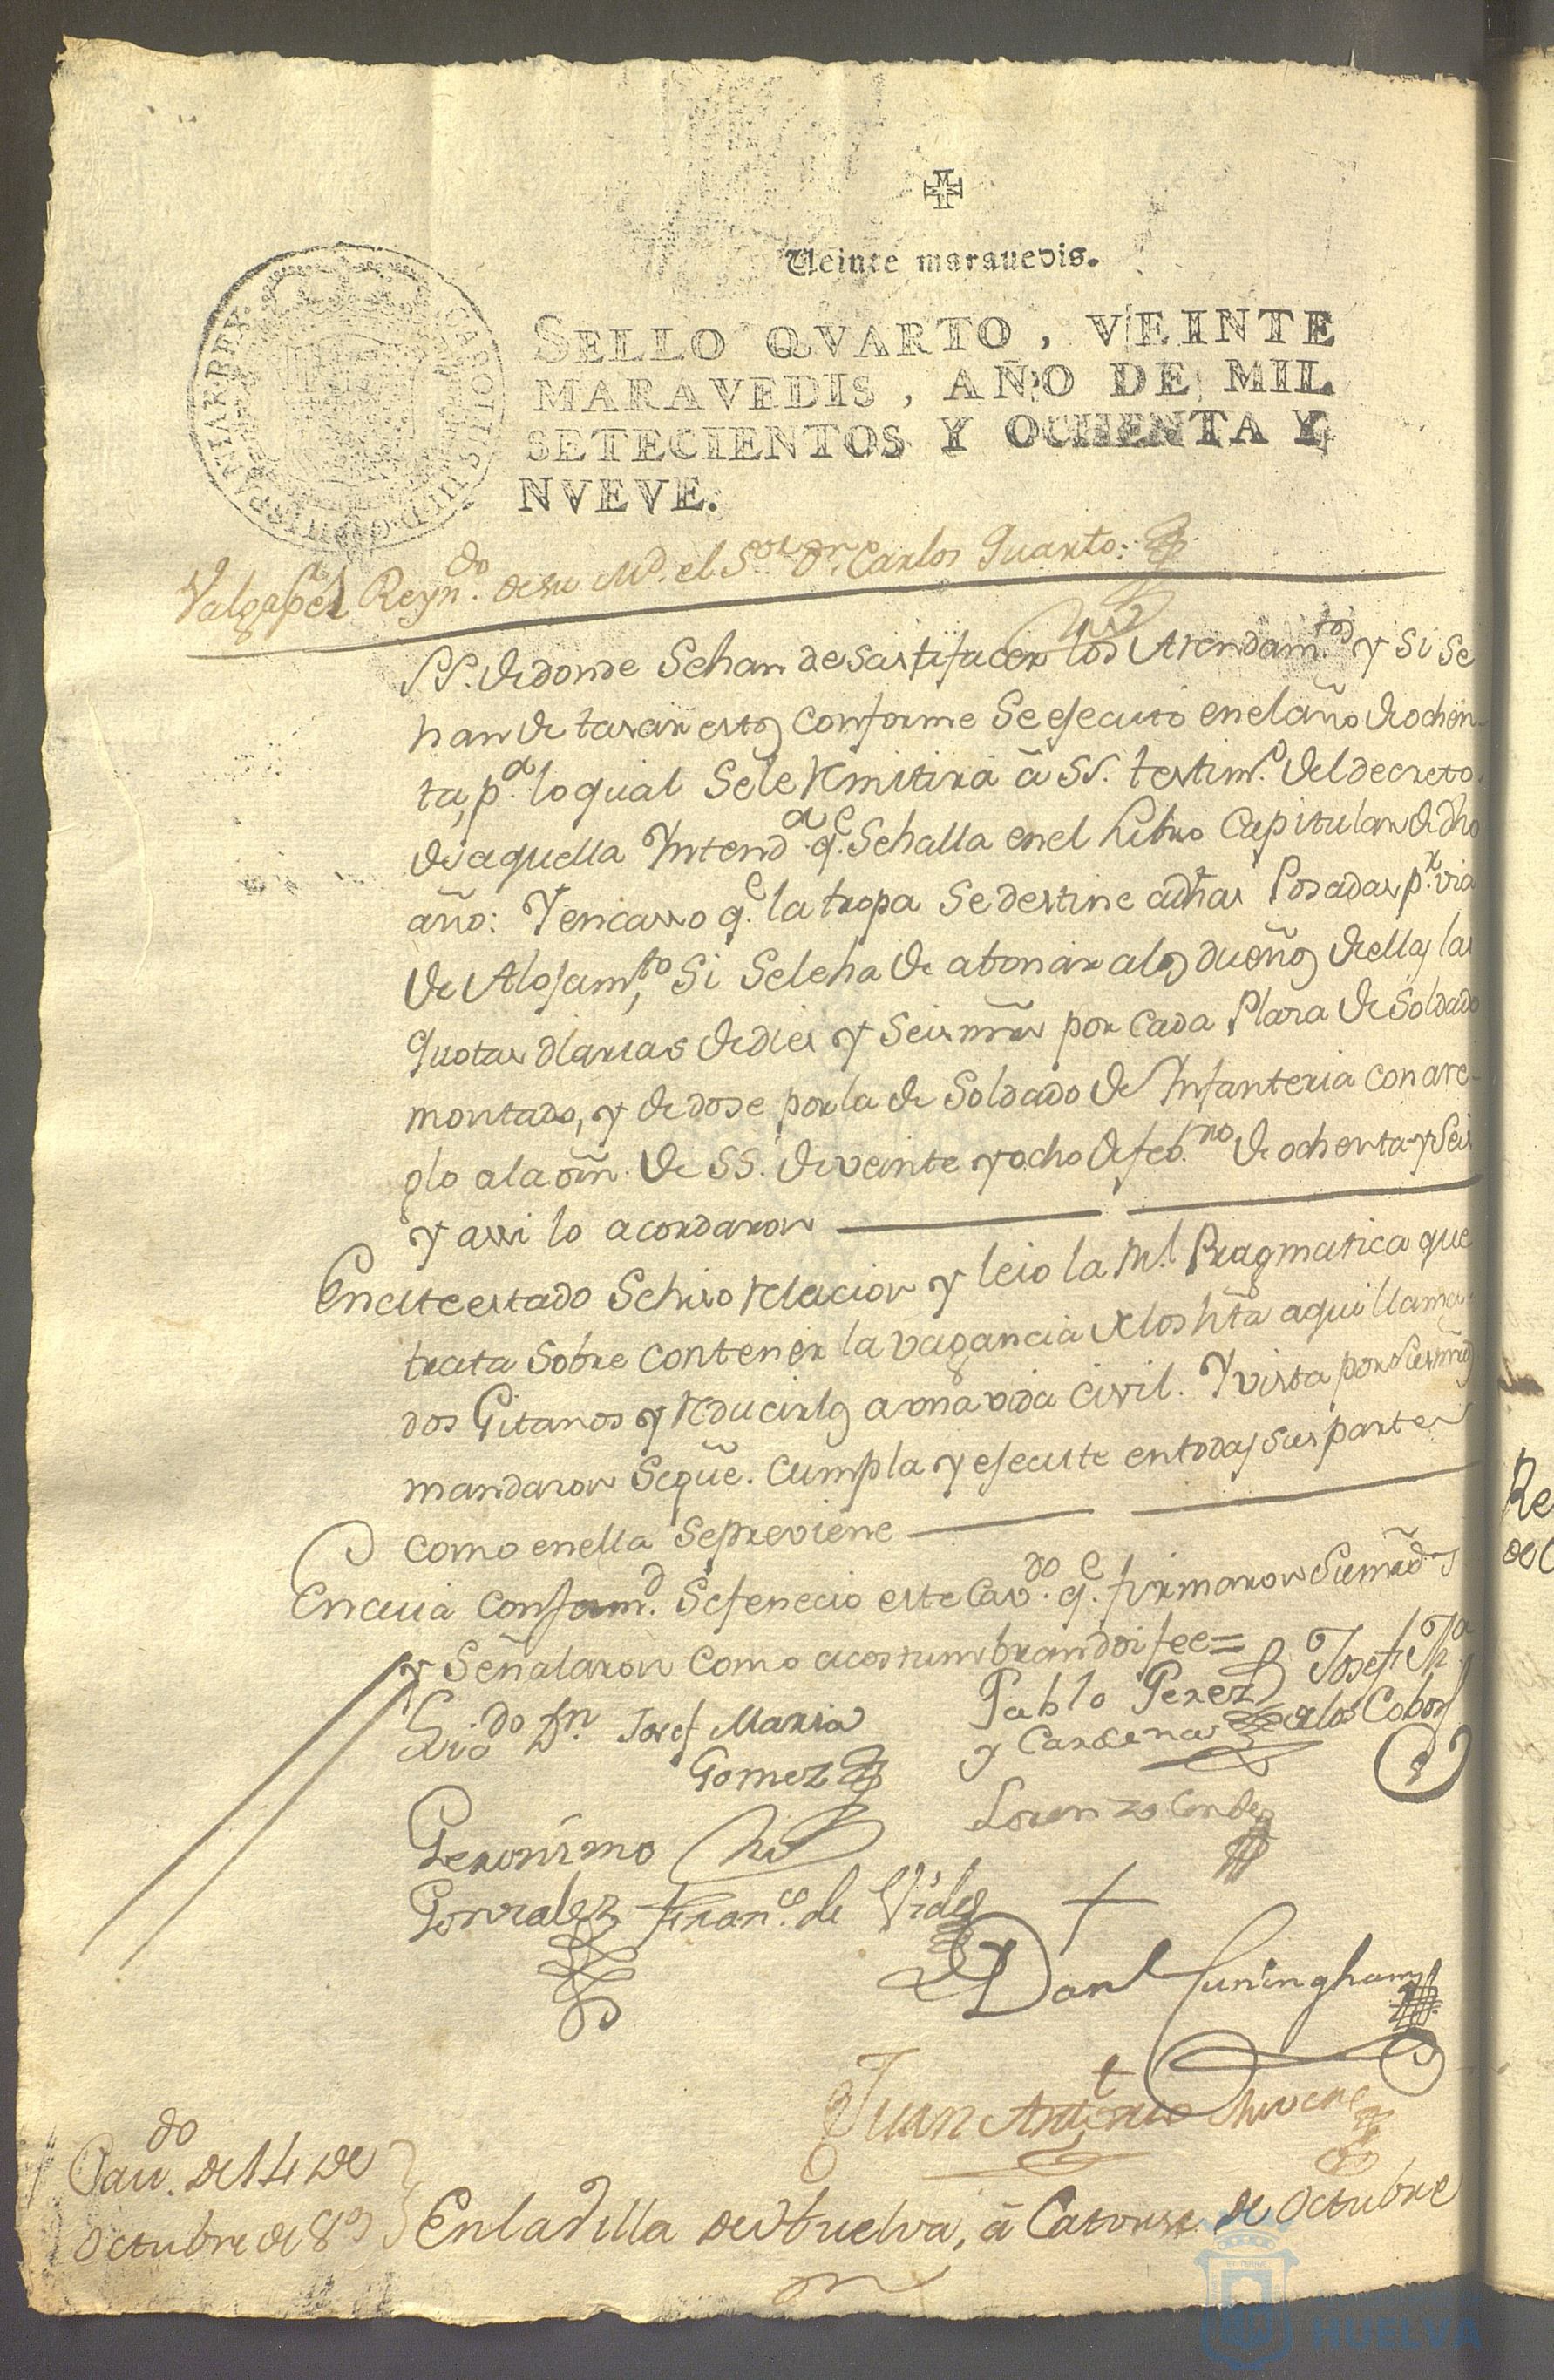 Veinte marauedis.
CAROLUS III D.G. HISPANIAR. REX
SELLO QVARTO, VEINTE
MARAVEDIS, AÑO DE MIL
SETECIENTOS Y OCHENTA Y
NVEVE.
Valga pª el Reyndo. de su Md. el Sor. Dn. Carlos Quarto.
SS. de donde se han de sastifacer los Arendamtos. y si se
han de tasar estos conforme se ejecuto en el año de ochen-
ta, pa. lo qual se le remitirá â SS. testimo. del decreto
de aquella Yntenda. qe. se halla en el Libro Capitular de dho
año: Y en casso qe. la tropa se destine a dhas Posadas pr. via
de Alojamto, si se le ha de abonar a los dueños de ellas las
quotas diarias de dies y seis mrs por cada Plaza de Soldado
montado, y de dose por la de Soldado de Ynfanteria con arre-
glo a la orn. de SS. de veinte y ocho de febro. de ochenta y seis
y assi lo acordaron
En este estado se hiso relacion y leio la Rl. Pragmatica que
trata sobre contener la vagancia de los hta aqui llama-
dos Gitanos y reducirlos a una vida civil. Y vista por sus mrds
mandaron se que. cumpla y ejecute en todas sus partes
como en ella se previene
En cuia conformd. se fenecio este Cavdo. qe. firmaron sus mrds
y señalaron como acostumbran doi fee=
Licdo Dn. Josef Maria
Gomez
Pablo Perez
y Cardenas
Josef Ma.
de los Cobos
Geronimo
Gonzalez
Lorenzo Conde
Franco. de Vides
Danl Cuningham
Juan Antonio
Cavdo. de 14 de
Octubre de 89
En la Villa de Huelva, â Catorse de Octubre
Re
de C
HUELVA